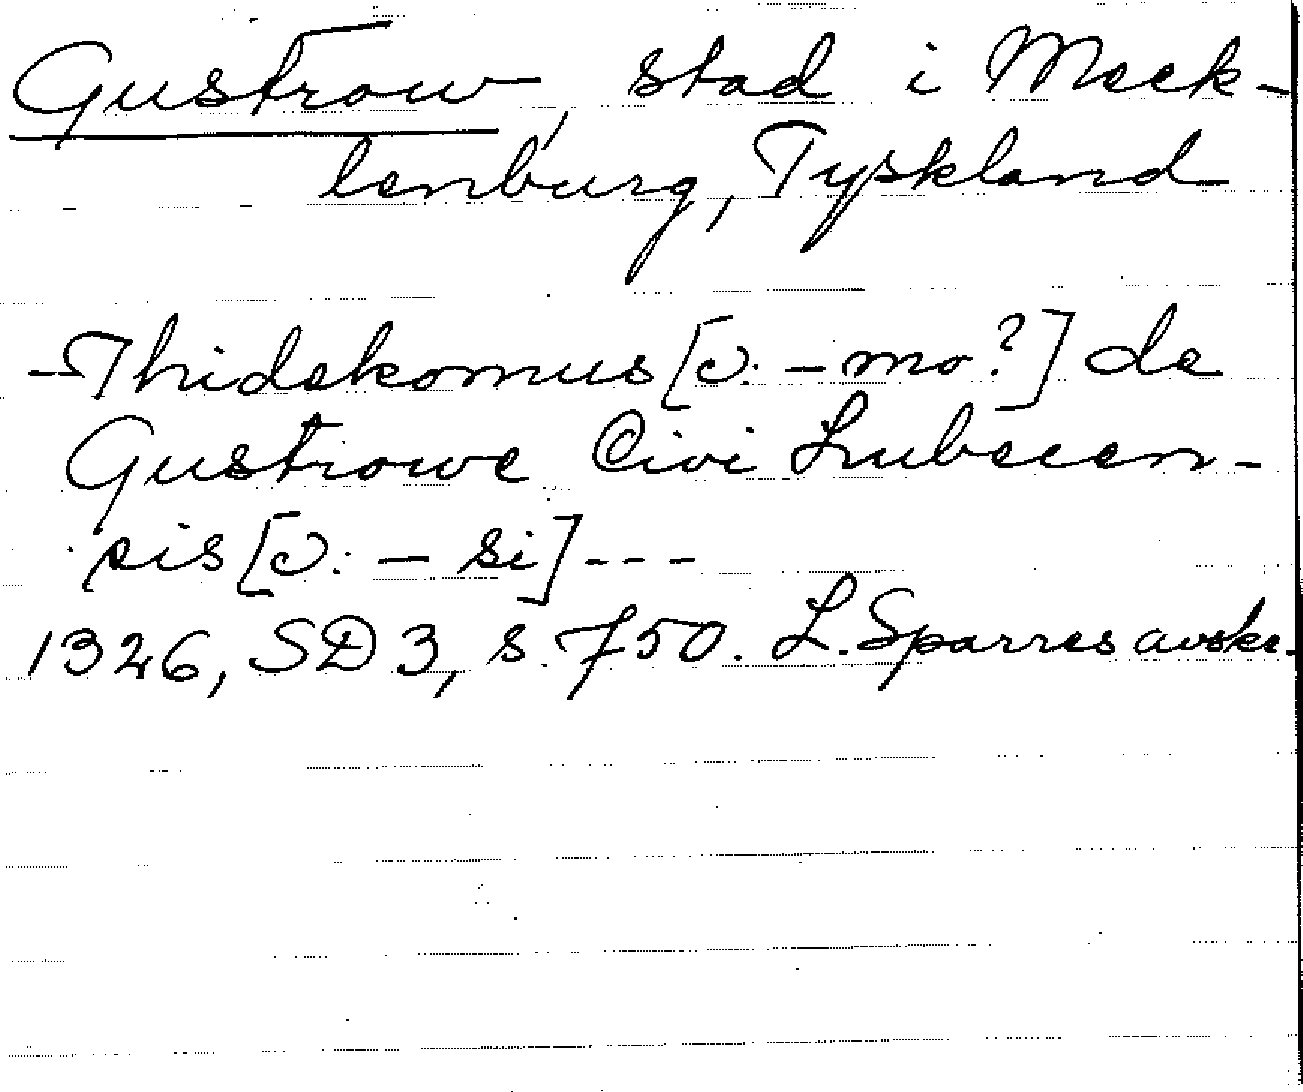 Gustrow, stad i Meck-
lenburg, Tyskland
-Thidekomus [ɔ: -mo?] de
Gustrowe Civi Lubecen-
sis [ɔ: - si] ---
1326, SD 3, s. 750. L. Sparres avskr.